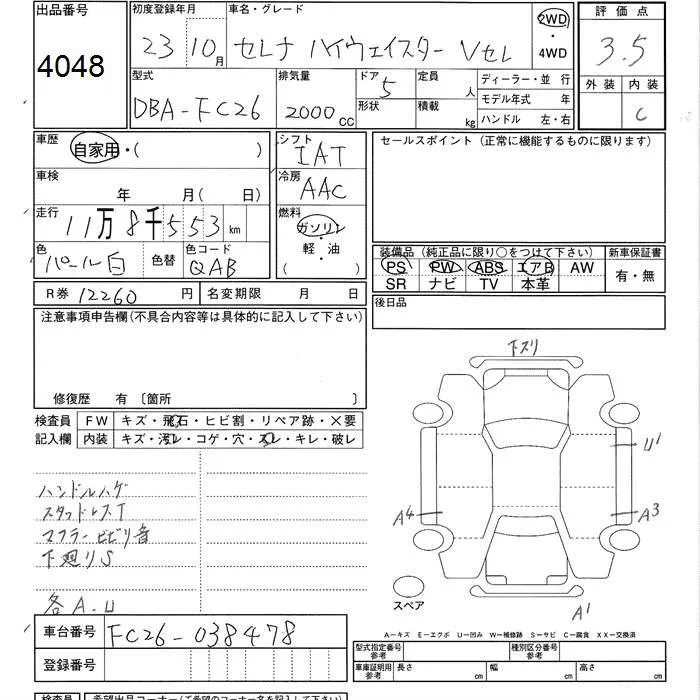 出品番号
4048
初度登録年月
23 10月
車名・グレード
セレナ ハイウェイスター Vセレ
2WD
・
4WD
評価点
3.5
外装 内装
C
型式
DBA-FC26
排気量
2000cc
ドア 5
形状
定員 人
積載 kg
ディーラー・並行
モデル年式 年
ハンドル 左・右
車歴
自家用・( )
シフト
IAT
セールスポイント(正常に機能するものに限ります)
車検
年 月(日)
冷房
AAC
走行
11万8千553km
燃料
ガソリン
軽・油
( )
色
パール白
色替
色コード
QAB
装備品(純正品に限り○をつけて下さい)
PS PW ABS エアB AW
SR ナビ TV 本革
新車保証書
有・無
R券 12260円
名変期限 月 日
後日品
注意事項申告欄(不具合内容等は具体的に記入して下さい)
修復歴 有〔箇所 〕
検査員
記入欄
FW キズ・飛石・ヒビ割・リペア跡・×要
内装 キズ・汚レ・コゲ・穴・スレ・キレ・破レ
ハンドルハゲ
スタッドレスT
マフラービビリ音
下廻りS
各A.U
下スリ
U1
A4
A3
A1
スペア
車台番号 FC26-038478
登録番号
A-キズ E-エクボ U-凹み W-補修跡 S-サビ C-腐食 XX-交換済
型式指定番号
参考
種別区分番号
参考
車庫証明用
参考
長さ cm 幅 cm 高さ cm
検査員
希望出品コーナー(ご希望のコーナー名を記入下さい)